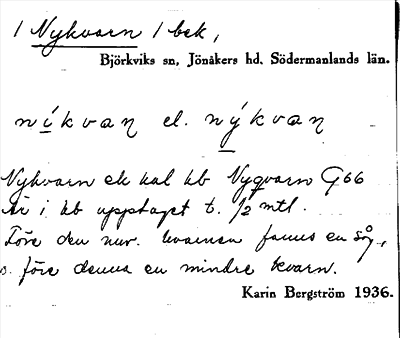 1 Nykvarn 1 bek,
Björkviks sn, Jönåkers hd. Södermanlands län.
níkvaɳ el. nýkvaɳ
Nykvarn ek kal kb Nyqvarn G66
är i kb upptaget t. 1/2 mtl.
Före den nuv. kvarnen fanns en såg,
o. före denna en mindre kvarn.
Karin Bergström 1936.